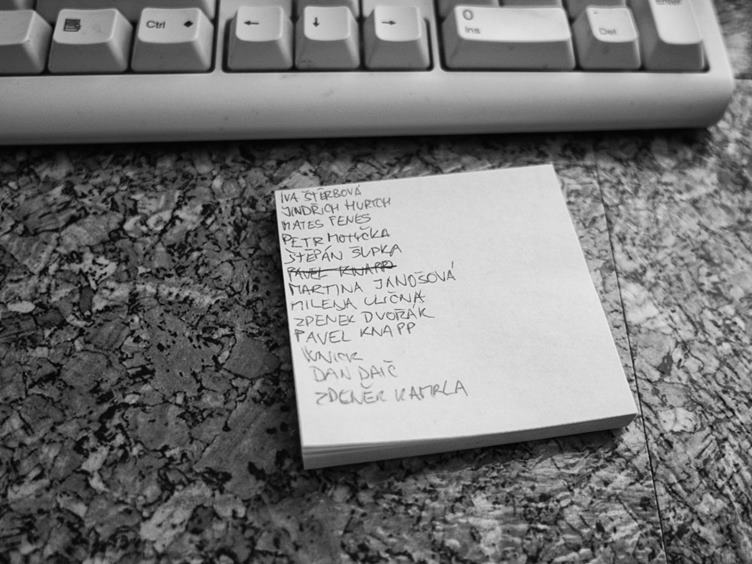 Ctrl
0
Ins
Del
Enter
IVA ŠTĚRBOVÁ
JINDŘICH HURTCH
MATES FENES
PETR MOTYČKA
ŠTĚPÁN ŠUPKA
PAVEL KNAPP
MARTINA JÁNOŠOVÁ
MILENA ULIČNÁ
ZDENEK DVOŘÁK
PAVEL KNAPP
DAN DAIČ
ZDENĚK KAMRLA